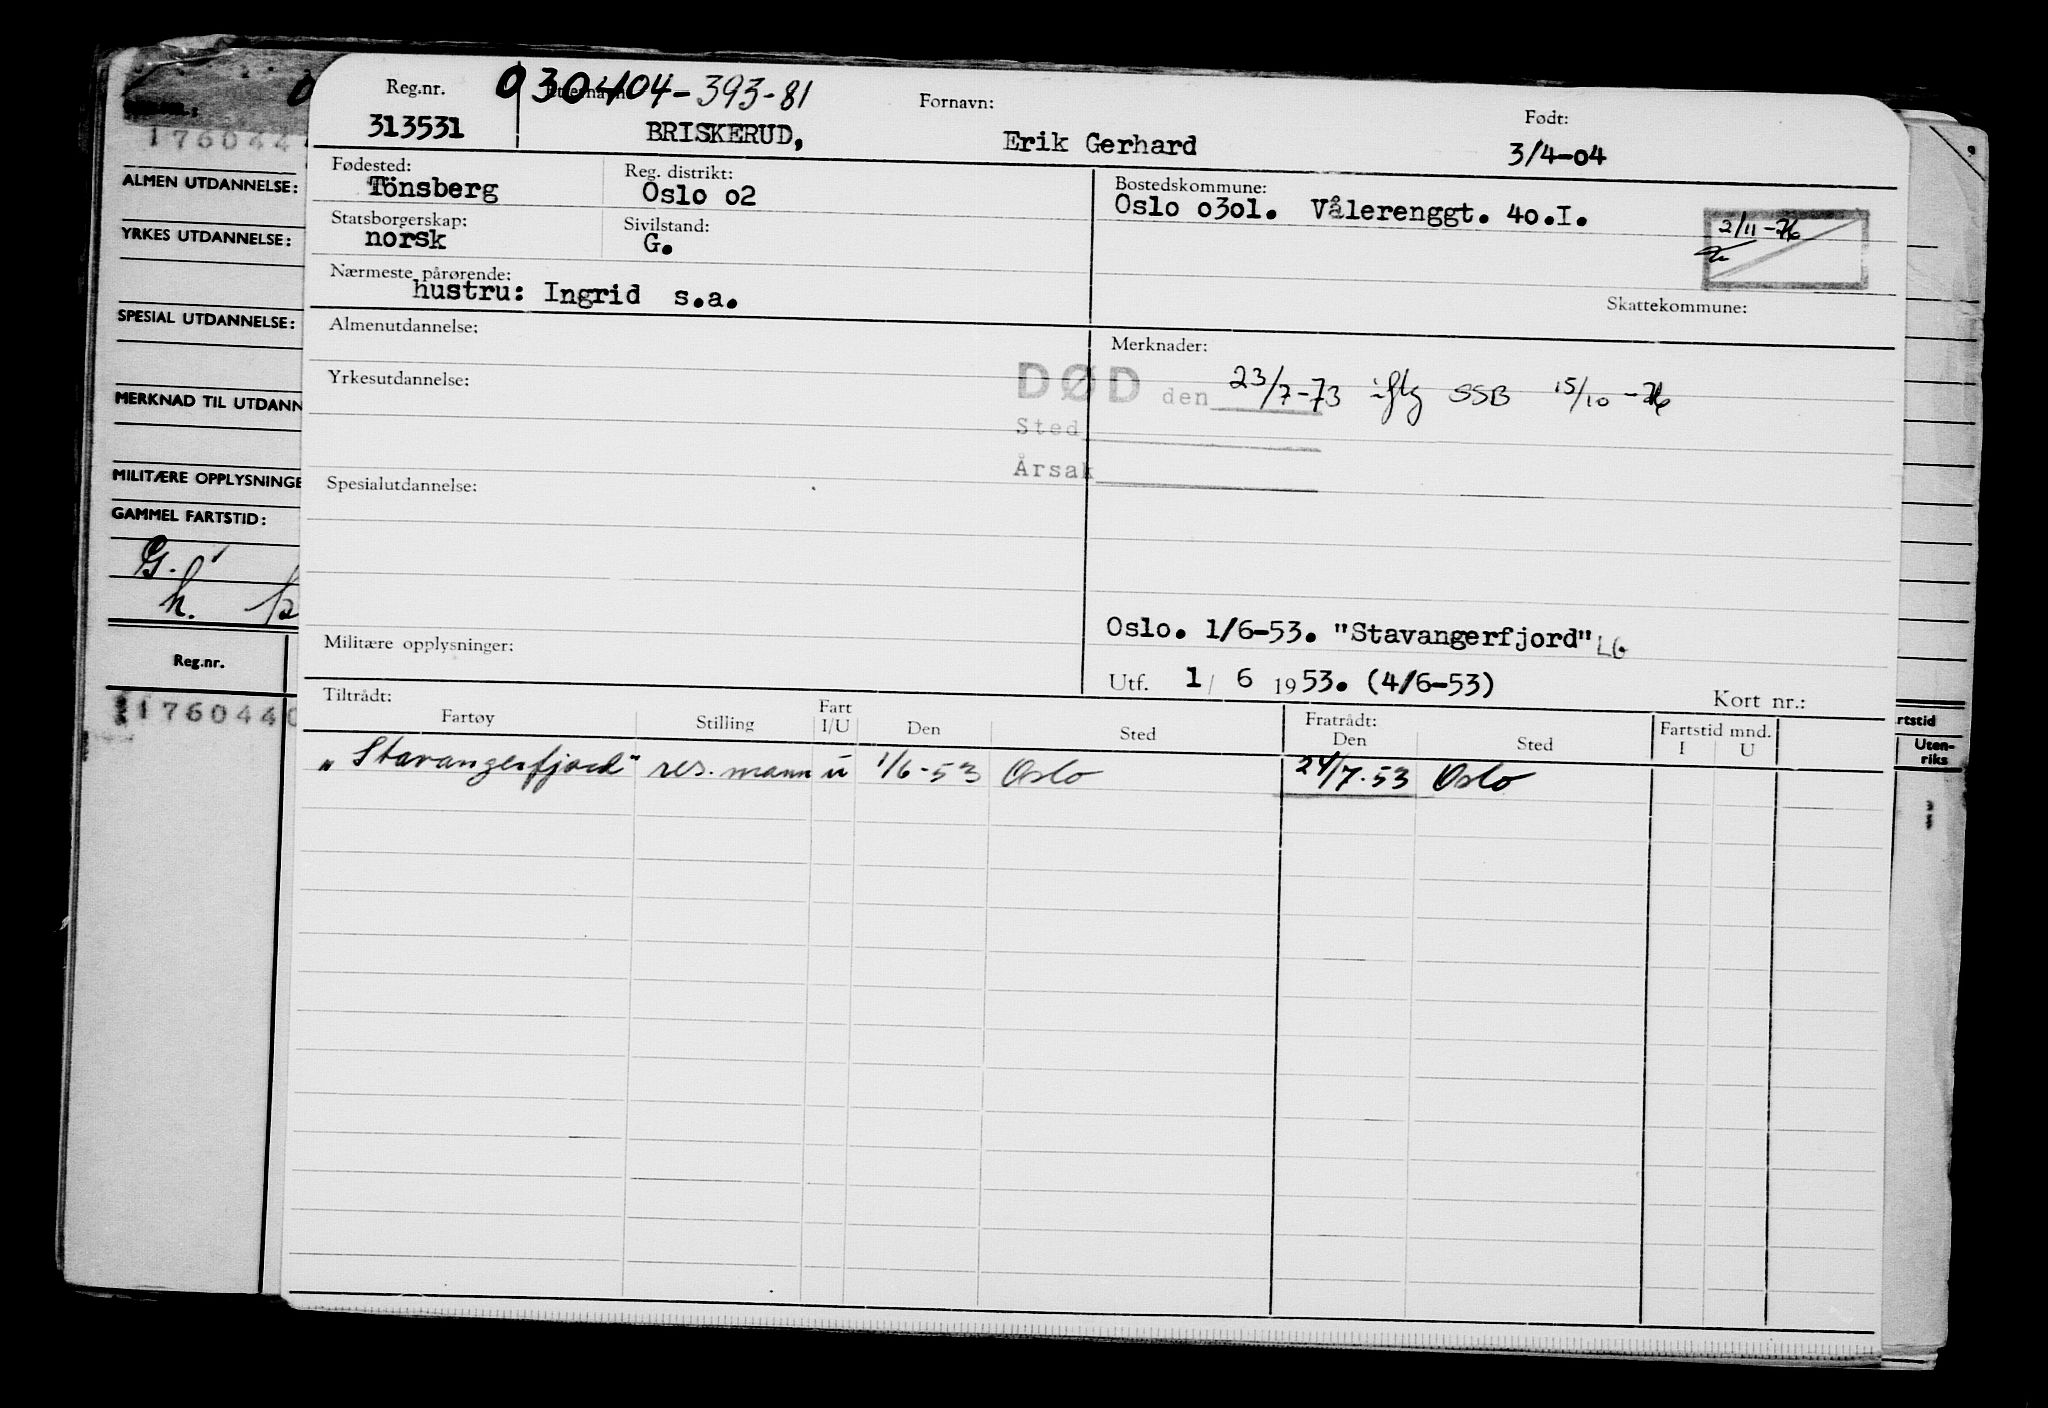 Reg.nr. 030404-393-81 Fornavn: Født:
313531 BRISKERUD, Erik Gerhard 3/4-04
Fødested: Reg. distrikt: Bostedskommune:
Tönsberg Oslo o2 Oslo o3o1. Vålerenggt. 4o.I.
Statsborgerskap: Sivilstand: 2/11-76
norsk G.
Nærmeste pårørende: Skattekommune:
hustru: Ingrid s.a.
Almenutdannelse: Merknader:
Yrkesutdannelse: DØD den 23/7-73 iflg SSB 15/10-76
Sted
Årsak
Spesialutdannelse:
Oslo. 1/6-53. "Stavangerfjord" LG
Militære opplysninger:
Utf. 1/ 6 1953. (4/6-53) Kort nr.:
Tiltrådt: Fratrådt: Fartstid mnd.
Fartøy Stilling Fart I/U Den Sted Den Sted I U
"Stavangerfjord" res. mann u 1/6-53 Oslo 24/7-53 Oslo
176044
ALMEN UTDANNELSE:
YRKES UTDANNELSE:
SPESIAL UTDANNELSE:
MERKNAD TIL UTDANN
MILITÆRE OPPLYSNINGE
GAMMEL FARTSTID:
G.
h.
Reg.nr.
1760440
rtstid
Uten-
riks